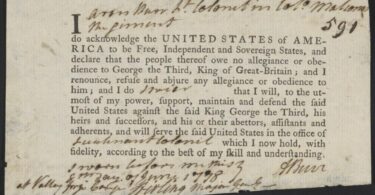 I Aaron Burr Lt. Colonel in Col. Malcom's
Regiment
591
do acknowledge the UNITED STATES of AME-
RICA to be Free, Independent and Sovereign States, and
declare that the people thereof owe no allegiance or obe-
dience to George the Third, King of Great-Britain; and I
renounce, refuse and abjure any allegiance or obedience to
him; and I do swear that I will, to the ut-
most of my power, support, maintain and defend the said
United States against the said King George the Third, his
heirs and successors, and his or their abettors, assistants and
adherents, and will serve the said United States in the office of
Lieutenant Colonel which I now hold, with
fidelity, according to the best of my skill and understanding.
Sworn before me this
1778
A Burr
at Valley forge Camp Stirling Major Genl